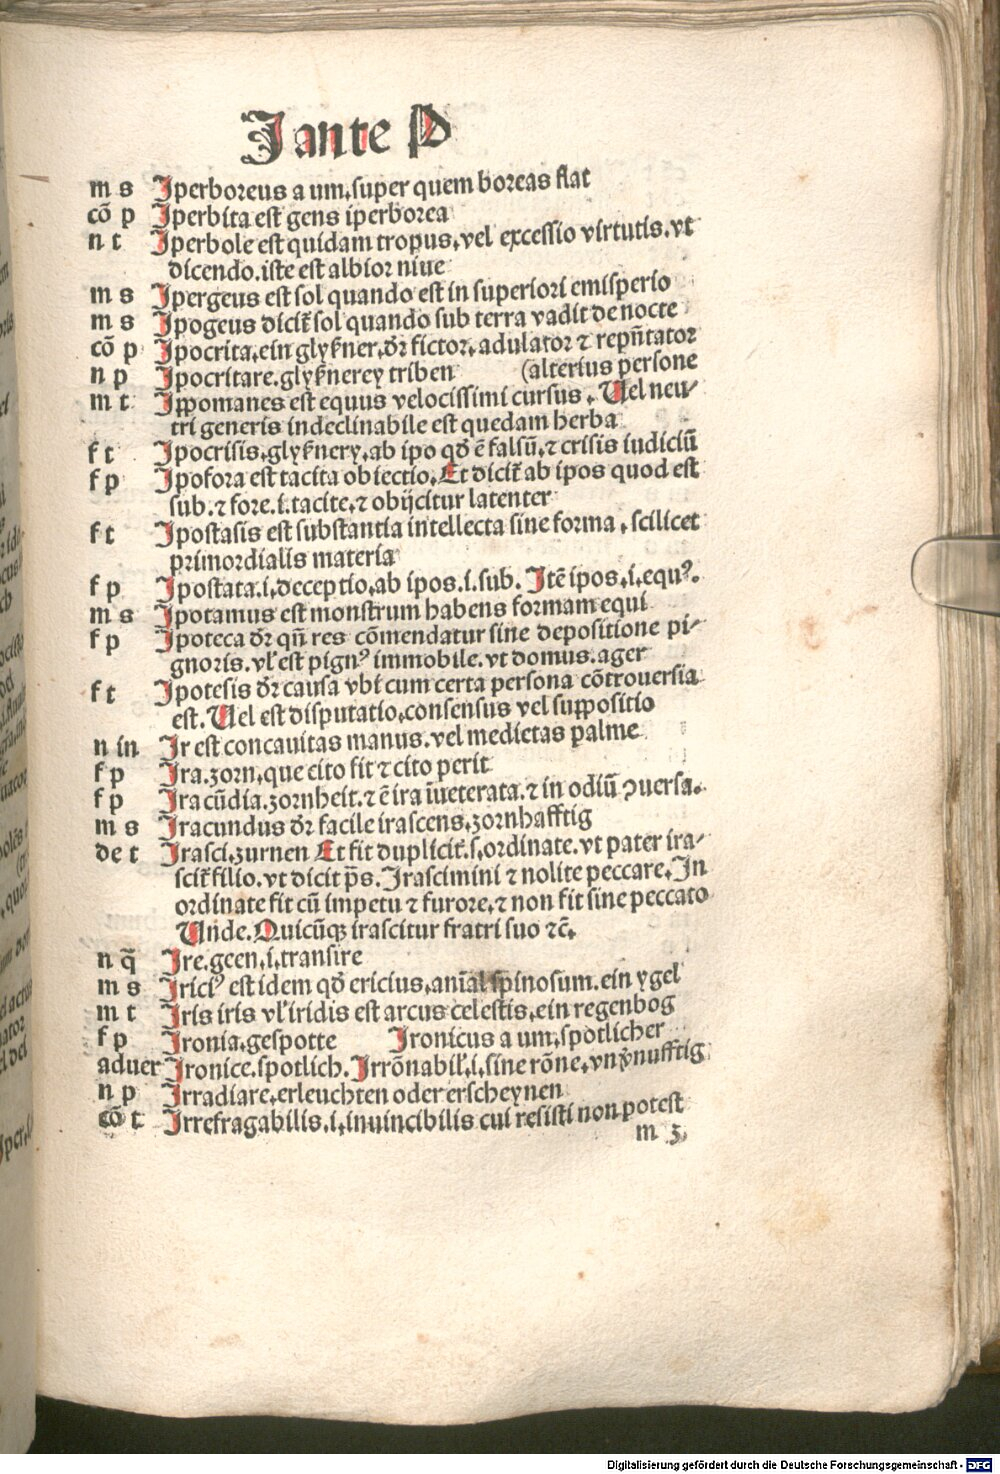 I ante P
m s Iperboreus a um. super quem boreas flat
cõ p Iperbita est gens iperborea
n t Iperbole est quidam tropus. vel excessio virtutis. vt
dicendo. iste est albior niue
m s Ipergeus est sol quando est in superiori emisperio
m s Ipogeus dicit̃ sol quando sub terra vadit de nocte
cõ p Ipocrita. ein glyßner. dr̃ fictor. adulator ⁊ repñtator
n p Ipocritare. glyßnerey triben (alterius persone
m t Ippomanes est equus velocissimi cursus. Uel neu⸗
tri generis indeclinabile est quedam herba
f t Ipocrisis. glyßnery. ab ipo qđ ẽ falsũ. ⁊ crisis iudiciũ
f p Ipofora est tacita obiectio. Et dicit̃ ab ipos quod est
sub. ⁊ fore. i. tacite. ⁊ obijcitur latenter
f t Ipostasis est substantia intellecta sine forma. scilicet
primordialis materia
f p Ipostata. i. deceptio. ab ipos. i. sub. Itẽ ipos. i. equꝰ.
m s Ipotamus est monstrum habens formam equi
f p Ipoteca dr̃ qñ res cõmendatur sine depositione pi⸗
gnoris. vl̓ est pignꝰ immobile. vt domus. ager
f t Ipotesis dr̃ causa vbi cum certa persona cõtrouersia
est. Uel est disputatio. consensus vel suppositio
n in Ir est concauitas manus. vel medietas palme
f p Ira. zorn. que cito fit ⁊ cito perit
f p Iracũdia. zornheit. ⁊ ẽ ira ĩueterata. ⁊ in odiũ ꝯuersa.
m s Iracundus dr̃ facile irascens. zornhafftig
de t Irasci. zurnen Et fit duplicit̃. s. ordinate. vt pater ira⸗
scit̃ filio. vt dicit p̃s. Irascimini ⁊ nolite peccare. In
ordinate fit cũ impetu ⁊ furore. ⁊ non fit sine peccato
Unde. Quicũqꝫ irascitur fratri suo ⁊c̃.
n q̃ Ire. geen. i. transire
m s Iriciꝰ est idem qđ ericius. anĩal spinosum. ein ygel
m t Iris iris vl̓ iridis est arcus celestis. ein regenbog
f p Ironia. gespotte Ironicus a um. spotlicher
aduer Ironice. spotlich. Irrõnabil̓. i. sine rõne. vnv̓nufftig
n p Irradiare. erleuchten oder erscheynen
cõ t Irrefragabilis. i. inuincibilis cui resisti non potest
m 3
Digitalisierung gefördert durch die Deutsche Forschungsgemeinschaft - DFG